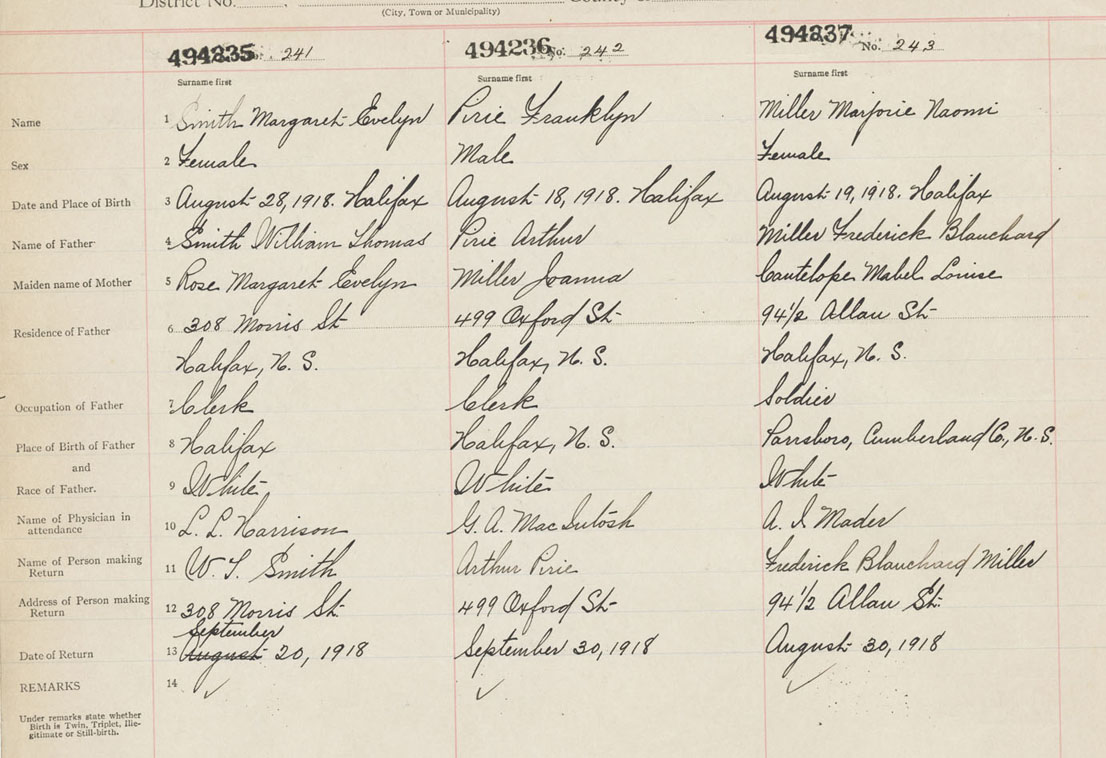 District No.
(City, Town or Municipality)
494235 No. 241 494236 No. 242 494237 No. 243
Surname first Surname first Surname first
Name 1 Smith Margaret Evelyn Pirie Franklyn Miller Marjorie Naomi
Sex 2 Female Male Female
Date and Place of Birth 3 August 28, 1918. Halifax August 18, 1918. Halifax August 19, 1918. Halifax
Name of Father 4 Smith William Thomas Pirie Arthur Miller Frederick Blanchard
Maiden name of Mother 5 Rose Margaret Evelyn Miller Joanna Cantelope Mabel Louise
Residence of Father 6 308 Morris St 499 Oxford St 94 1/2 Allan St
Halifax, N. S. Halifax, N. S. Halifax, N. S.
Occupation of Father 7 Clerk Clerk Soldier
Place of Birth of Father 8 Halifax Halifax, N. S. Parrsboro, Cumberland Co., N. S.
and
Race of Father. 9 White White White
Name of Physician in attendance 10 L. L. Harrison G. A. MacIntosh A. I Mader
Name of Person making Return 11 W. T. Smith Arthur Pirie Frederick Blanchard Miller
Address of Person making Return 12 308 Morris St. 499 Oxford St 94 1/2 Allan St.
September
Date of Return 13 August 20, 1918 September 30, 1918 August 30, 1918
REMARKS 14
Under remarks state whether
Birth is Twin, Triplet, Ille-
gitimate or Still-birth.